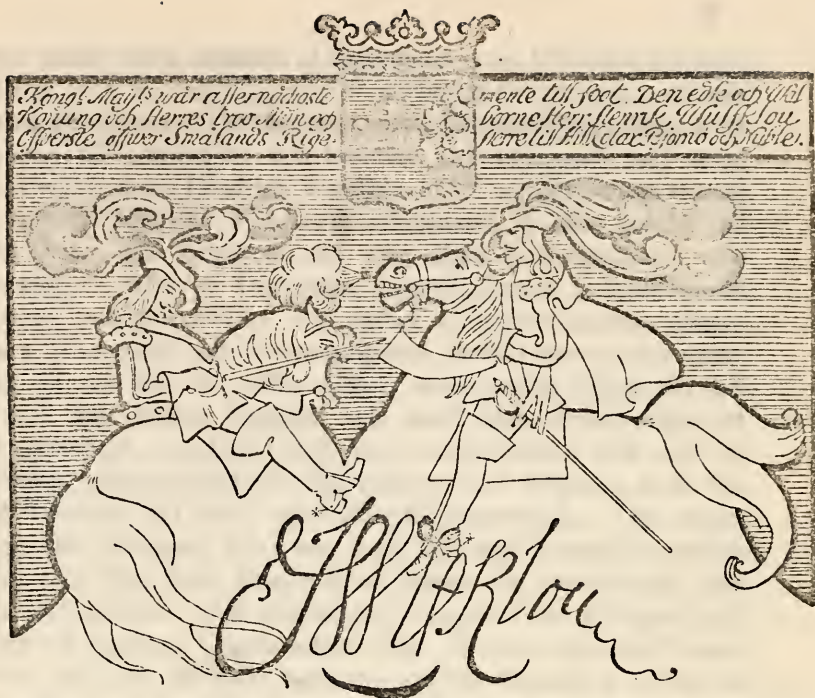 Kongl. Maÿts wår allernådigste
Konung och Herres troo Män och
Öffverste öffwer Smålands Rige-
mente till foot. Den edle och Wäl
borne Herr Henrik Wulffklou
Herre till Pojomo och Nable.
HWlffKlou